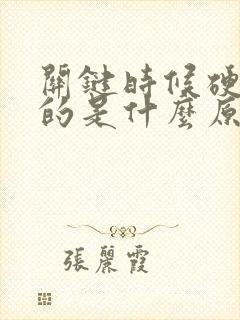 關鍵時候硬
的是什麼原
張麗霞